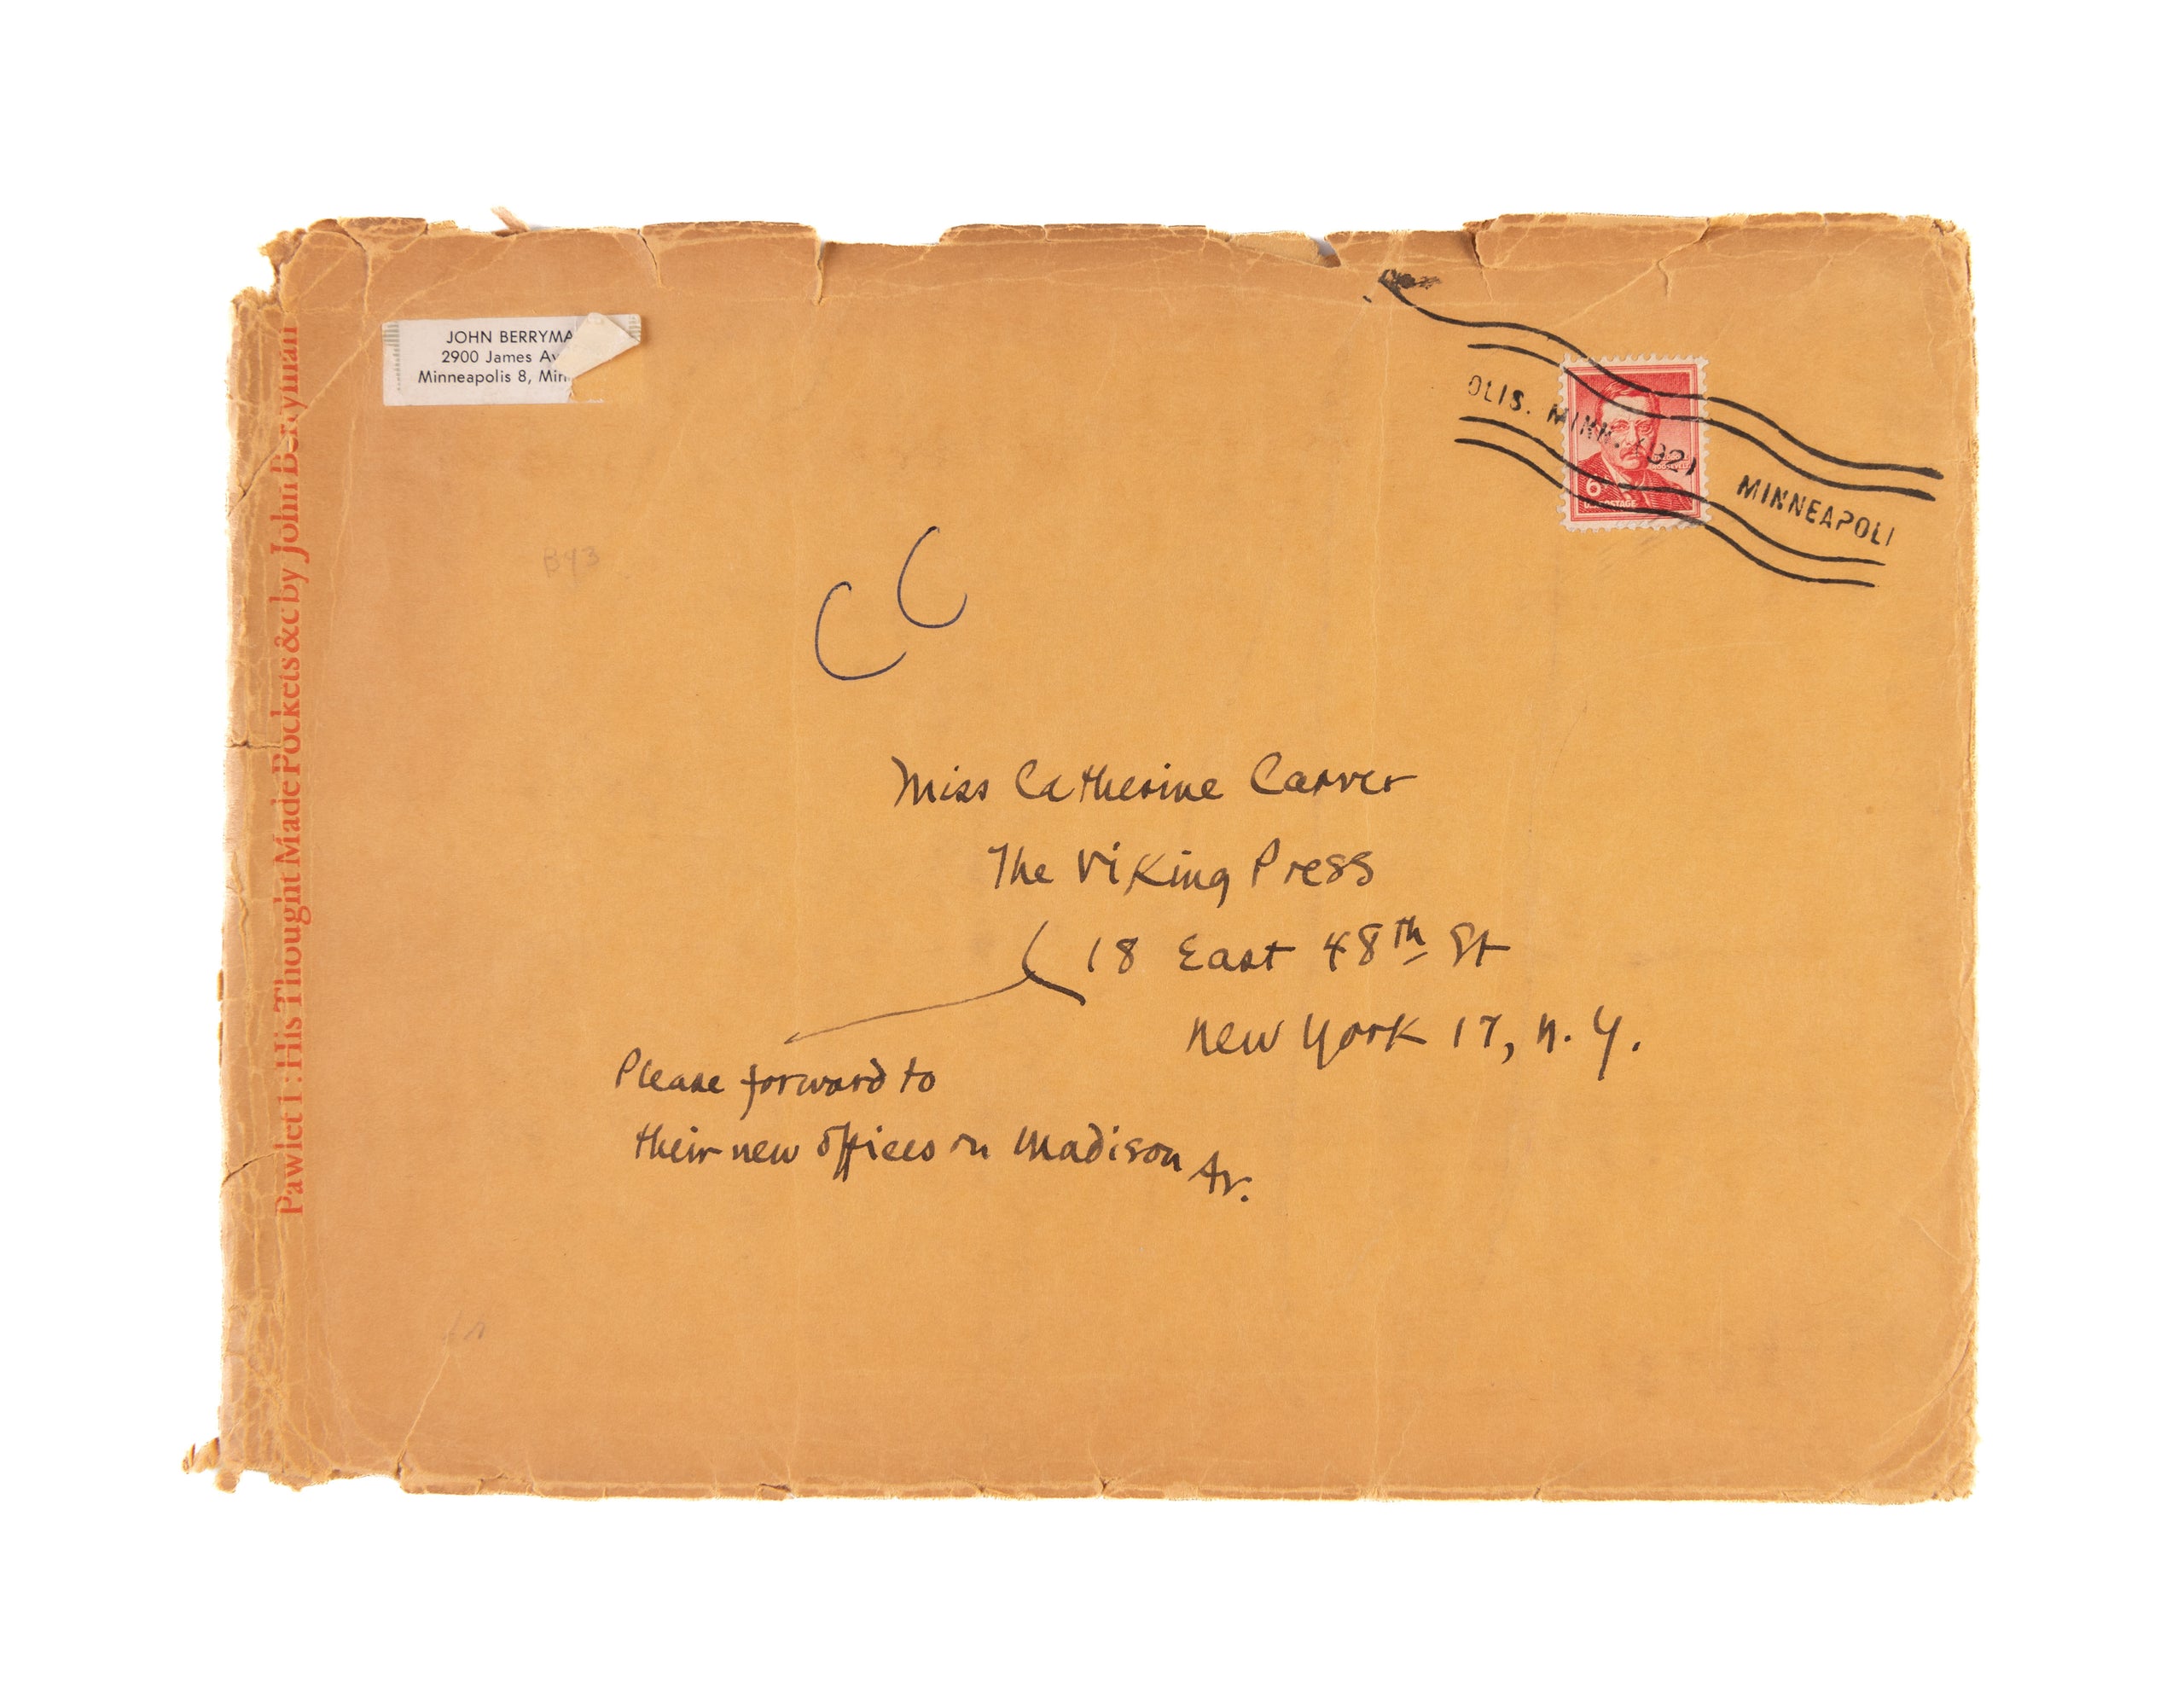 JOHN BERRYMA
2900 James Av
Minneapolis 8, Min
Pawlet 1: His Thought Made Pockets & c by John Berryman
OLIS. MINN.
MINNEAPOLI
6¢
U.S. POSTAGE
ROOSEVELT
B43
CC
Miss Catherine Carver
The Viking Press
18 East 48th St
New York 17, N.Y.
Please forward to
their new offices on Madison Av.